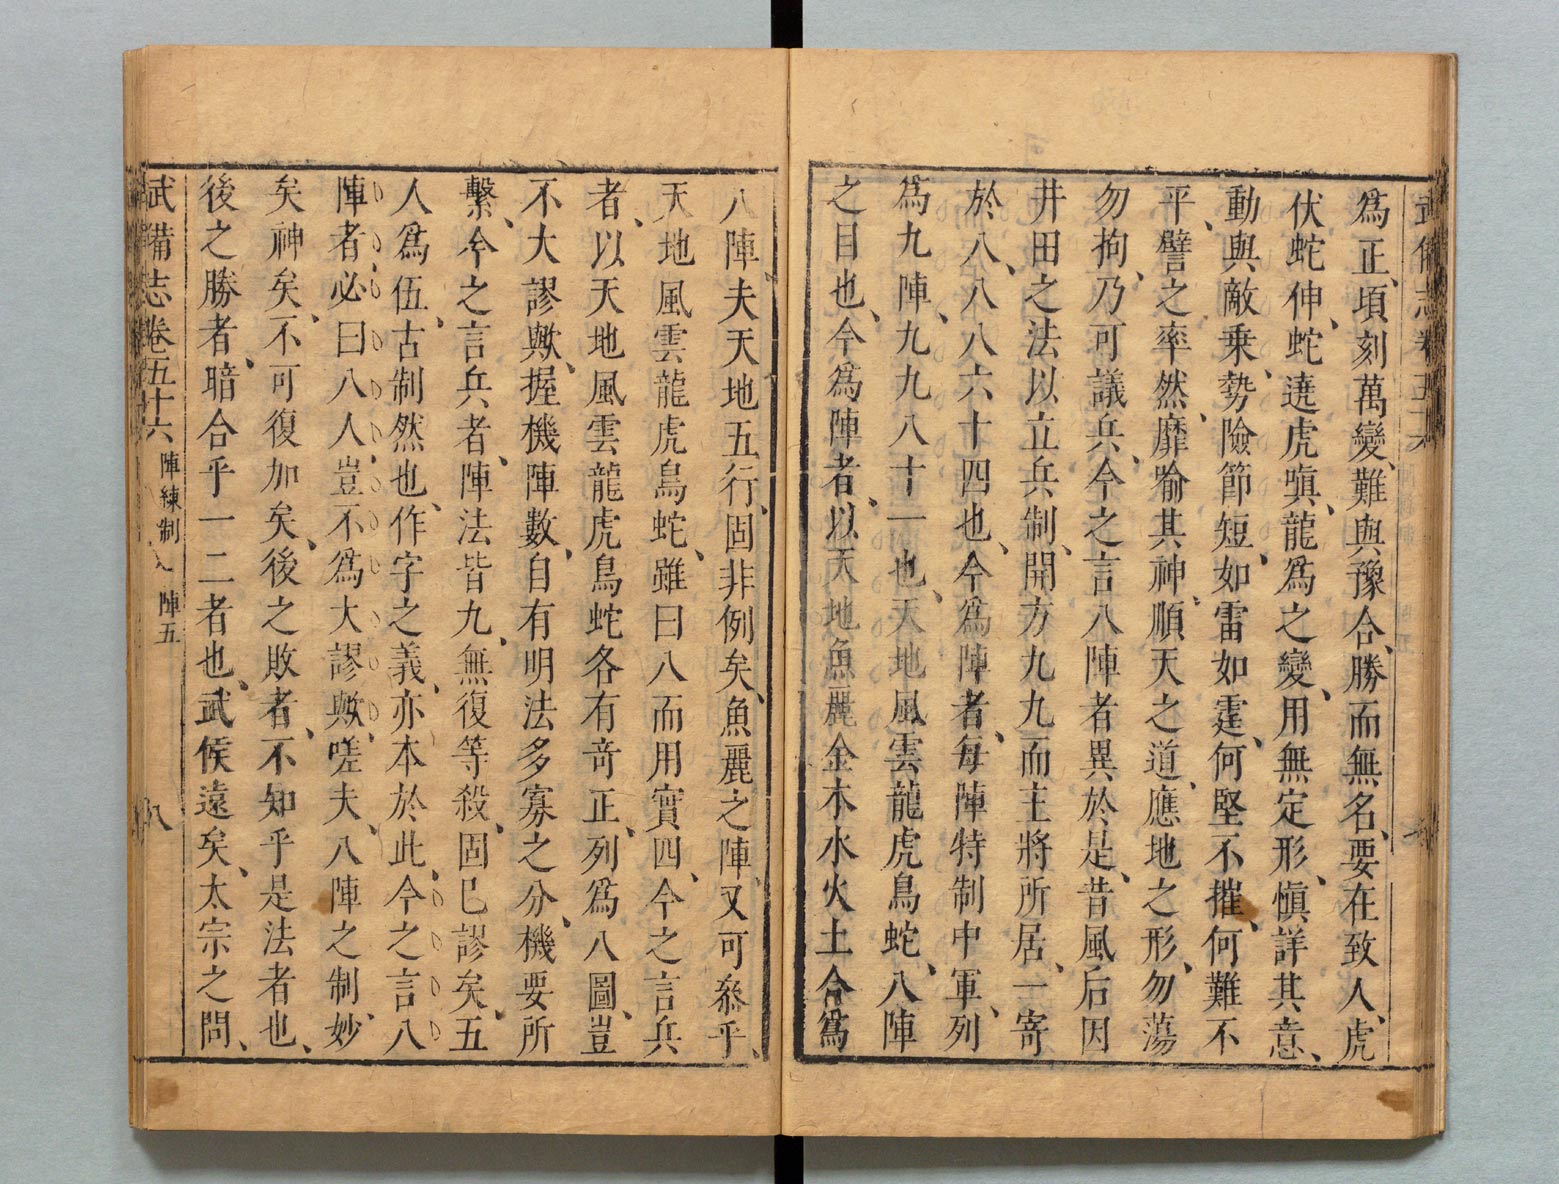 爲正、頃刻萬變、難與豫合、勝而無名、要在致人、虎
伏蛇伸、蛇遶虎嗔、龍爲之變、用無定形、愼詳其意、
動與敵乗、勢險節短、如雷如霆、何堅不摧、何難不
平、譬之率然、靡喻其神、順天之道、應地之形、勿蕩
勿拘、乃可議兵、今之言八陣者異於是、昔風后因
井田之法以立兵制、開方九九而主將所居、一寄
於八、八八六十四也、今爲陣者、每陣特制中軍、列
爲九陣、九九八十一也、天地風雲龍虎鳥蛇、八陣
之目也、今爲陣者、以天地魚麗金木水火土合爲
八陣、夫天地五行、固非例矣、魚麗之陣、又可叅乎、
天地風雲龍虎鳥蛇、雖曰八而用實四、今之言兵
者、以天地風雲龍虎鳥蛇各有竒正、列爲八圖、豈
不大謬歟、握機陣數、自有明法多寡之分、機要所
繫、今之言兵者、陣法皆九、無復等殺、固已謬矣、五
人爲伍、古制然也、作字之義、亦本於此、今之言八
陣者必曰八人、豈不爲大謬歟、嗟夫、八陣之制、妙
矣神矣、不可復加矣、後之敗者、不知乎是法者也、
後之勝者、暗合乎一二者也、武候遠矣、太宗之問、
武備志卷五十六 陣練制 陣五 八